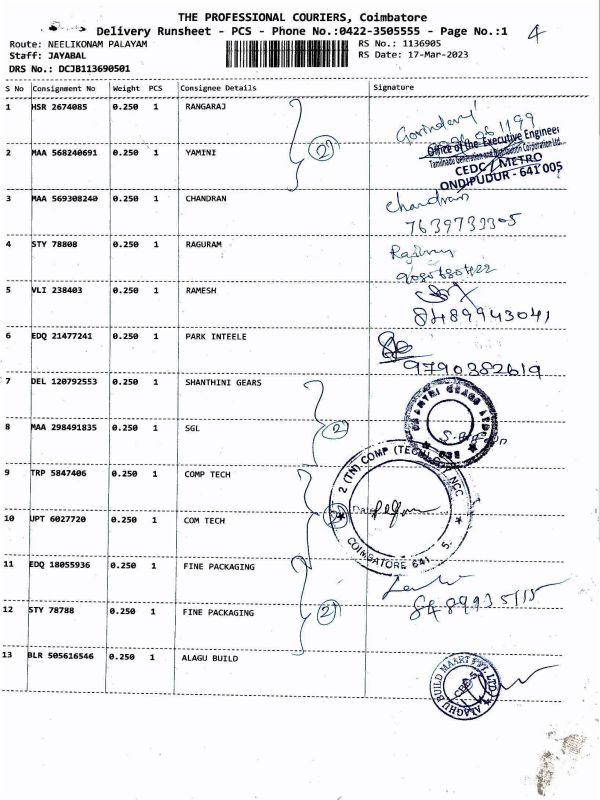 THE PROFESSIONAL COURIERS, Coimbatore
Delivery Runsheet - PCS - Phone No.:0422-3505555 - Page No.:1
4
Route: NEELIKONAM PALAYAM
RS No.: 1136905
Staff: JAYABAL
RS Date: 17-Mar-2023
DRS No.: DCJB113690501
S No Consignment No Weight PCS Consignee Details Signature
1 HSR 2674085 0.250 1 RANGARAJ
2
Office of the Executive Engineer
Tamilnadu Generation and Distribution Corporation Ltd.,
CEDC / METRO
ONDIPUDUR - 641 005
2 MAA 568240691 0.250 1 YAMINI
3 MAA 569308240 0.250 1 CHANDRAN
Chandran
7639733305
4 STY 78808 0.250 1 RAGURAM
5 VLI 238403 0.250 1 RAMESH
8489943041
6 EDQ 21477241 0.250 1 PARK INTEELE
9790382619
7 DEL 120792553 0.250 1 SHANTHINI GEARS
8 MAA 298491835 0.250 1 SGL
2
9 TRP 5847406 0.250 1 COMP TECH
2 (TN) COMP (TECH) NCC
Date
COIMBATORE 641 5.
10 UPT 6027720 0.250 1 COM TECH
11 EDQ 18055936 0.250 1 FINE PACKAGING
12 STY 78788 0.250 1 FINE PACKAGING
2
13 BLR 505616546 0.250 1 ALAGU BUILD
ALAGHU BUILD MAART PVT. LTD.
CBE-5